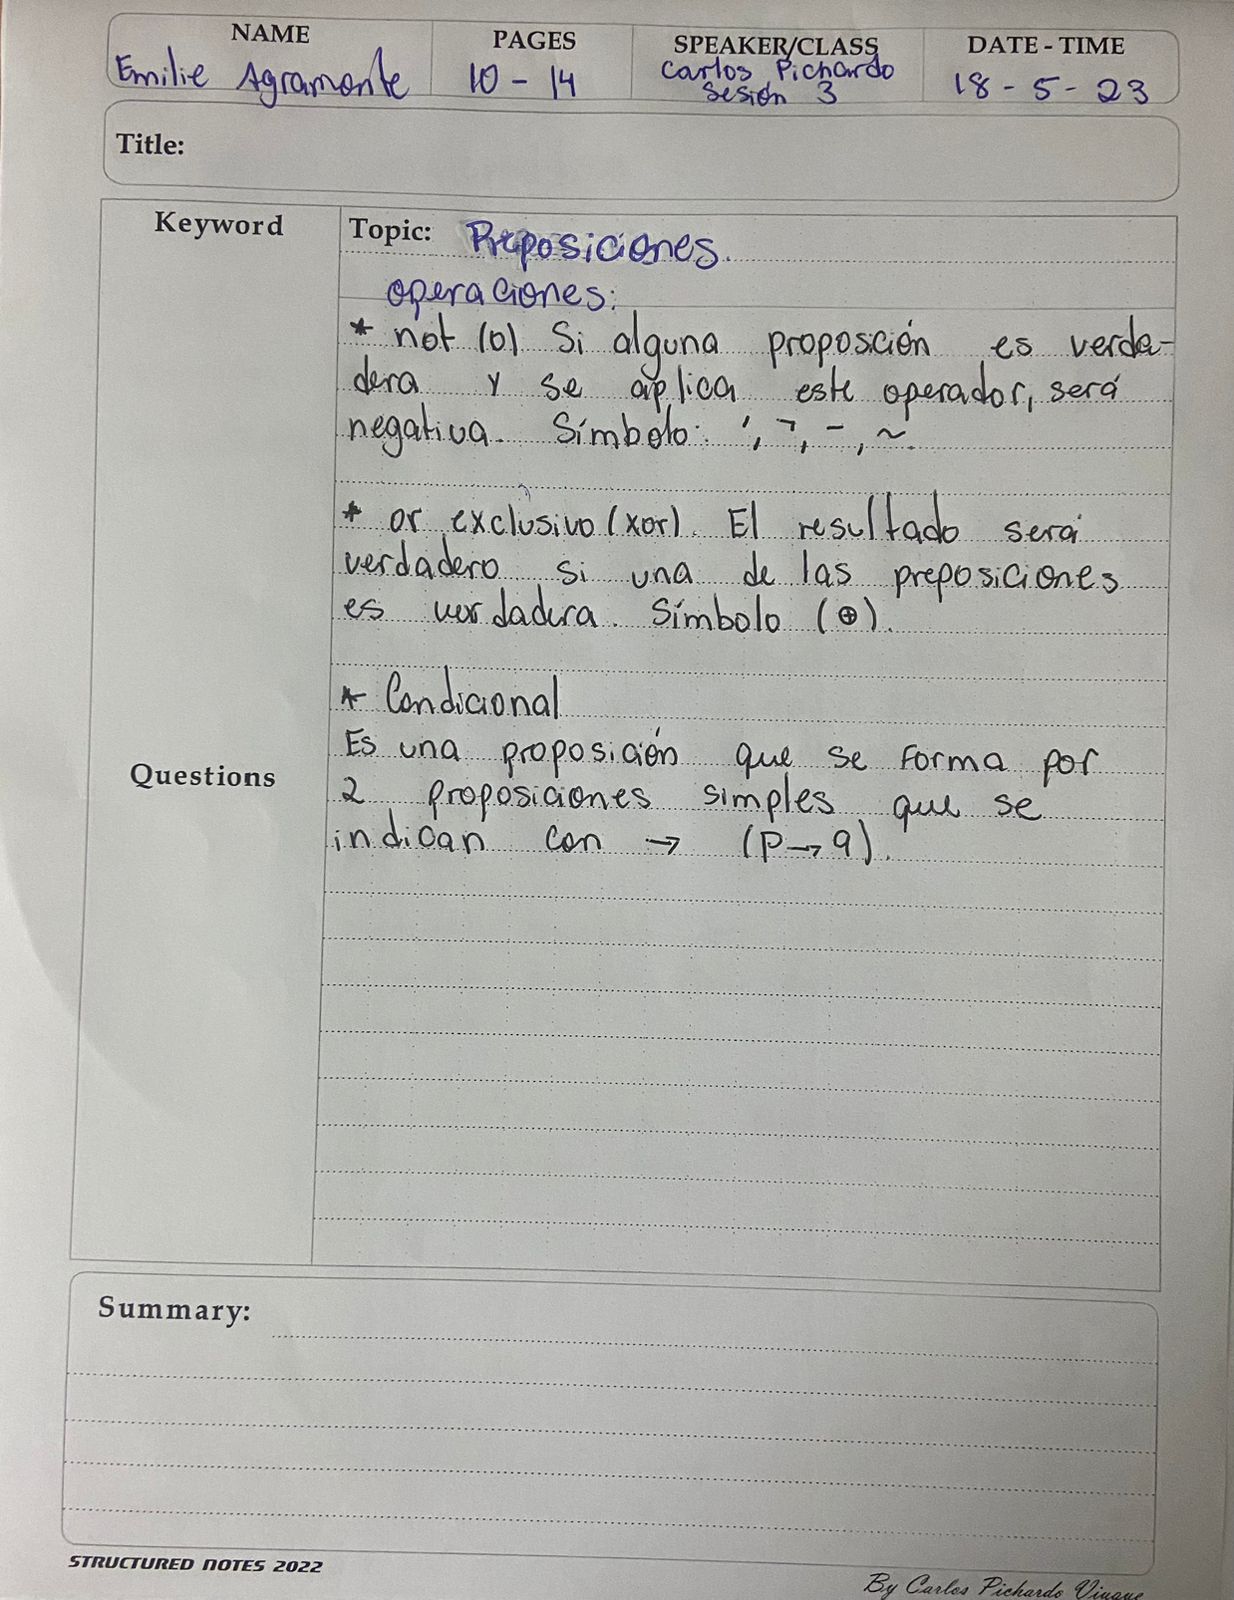 NAME PAGES SPEAKER/CLASS DATE - TIME
Emilie Agramonte 10 - 14 Carlos Pichardo Sesión 3 18 - 5 - 23
Title:
Keyword
Topic: Preposiciones.
operaciones:
* not (o) Si alguna proposción es verda-
dera y se aplica este operador, será
negativa. Símbolo: ', ¬, -, ~.
* or exclusivo (xor). El resultado será
verdadero si una de las preposiciones
es verdadera. Símbolo (⊕).
* Condicional
Es una proposición que se forma por
Questions
2 proposiciones simples que se
indican con → (p→q).
Summary:
STRUCTURED NOTES 2022
By Carlos Pichardo Viuque